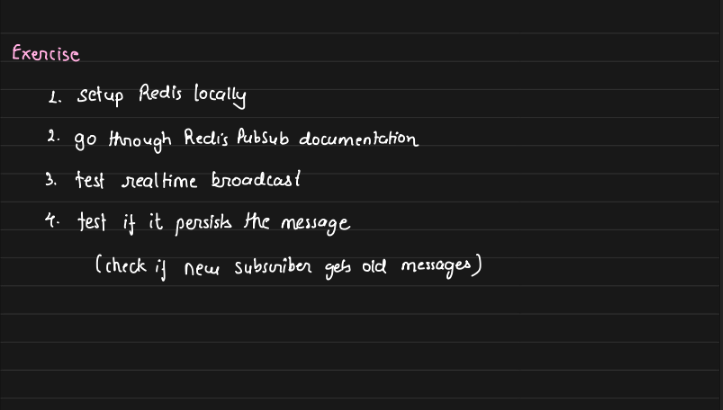 Exercise
1. setup Redis locally
2. go through Redis PubSub documentation
3. test realtime broadcast
4. test if it persists the message
(check if new subscriber gets old messages)